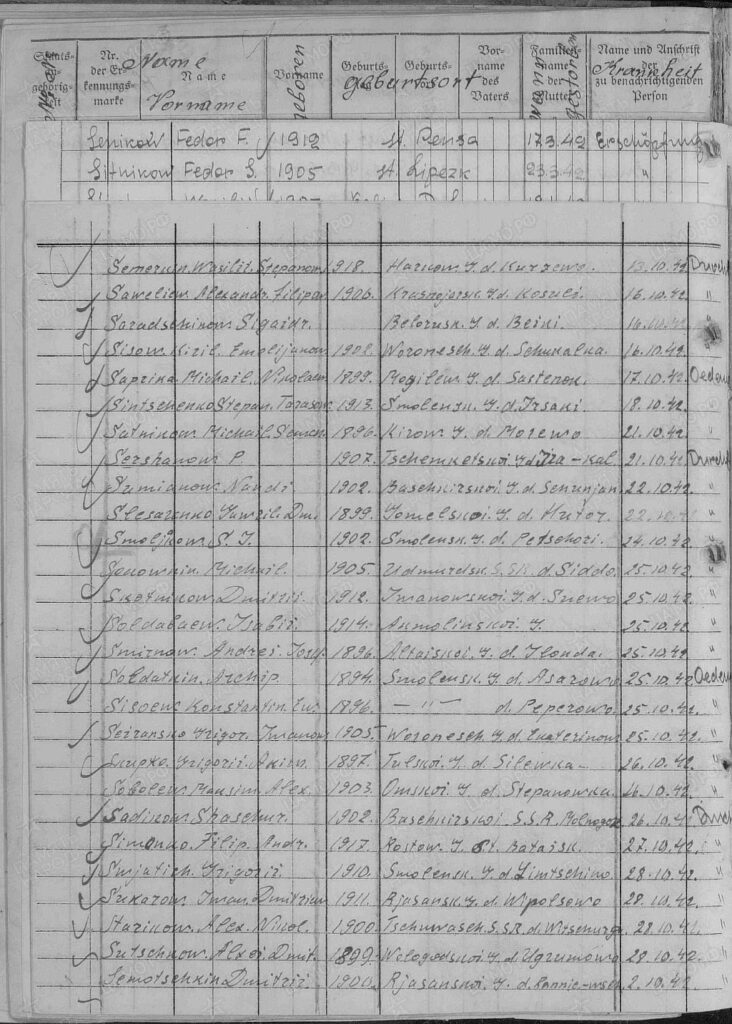 Nr. der Erkennungsmarke Name Vorname Name Vorname geboren Geburtsort Geburts Vorname des Vaters Familienname der Mutter wann gestorben Name und Anschrift der zu benachrichtigenden Person Krankheit
Senikow Fedor F. 1912 st. Pensa 17.3.42 Erschöpfung
Sitnikow Fedor S. 1905 st. Lipezk 23.3.42 "
Semerun Wasilii Stepanow 1918. Harkow J. d. Kurzewo. 13.10.42 Durchf
Saweliew Alexandr Filipow 1906. Krasnojarsk. J. d. Kosuli 16.10.42 "
Saradschinow Sigaidr. Belorusk. J. d. Beiki 16.10.42 "
Sisow Kiril Emelijanow 1902. Woronesch. J. d. Schukalka. 16.10.42 "
Saprika Michail Nikolaew 1899. Mogilew J. d. Sastenok. 17.10.42 Oedem
Sintschenko Stepan Tarasow 1913. Smolensk. J. d. Irsaki 18.10.42 "
Satnikow Michail Semen 1896. Kirow J. d. Morewo 21.10.42 "
Sershanow P. 1907. Tschemketskoi J. d. Ira-Kal. 21.10.42 Durchf
Sumianow Nandi 1902. Baschkirskoi J. d. Senunjan. 22.10.42 "
Slesarenko Gawril Dm. 1899. Gomelskoi. J. d. Hutor. 22.10.42 "
Smoljkow S. I. 1902. Smolensk. J. d. Petschori. 24.10.42 "
Michail. 1905. Udmurdsk. S.S.R. d. Siddo. 25.10.42 "
Skotnikow Dmitrii 1912. Iwanowskoi. J. d. Snewo 25.10.42 "
Soldabaew Isabii 1914. Akmolinskoi. J. 25.10.42 "
Smirnow Andrei Josif 1896. Altaiskoi. J. d. Ilonda. 25.10.42 "
Soldatkin Archip. 1894. Smolensk. J. d. Asarowo 25.10.42 Oedem
Sisoew Konstantin Ew. 1896. — " — d. Peperowo. 25.10.42 "
Seiransko Grigor. Iwanow 1905. Woronesch. J. d. Ekaterinow 25.10.42 "
Skripko Grigorii Akim. 1897. Tulskoi J. d. Silewka 26.10.42 "
Sobolew Maksim Alex. 1903. Omskoi. J. d. Stepanowka. 26.10.42 "
Sadikow Shaschur. 1902. Baschkirskoi S.S.R. 26.10.42 Durch
Simonko Filip Andr. 1917. Rostow. J. St. Bataisk. 27.10.42 "
Smjatich Grigorii 1910. Smolensk. J. d. Limtschino. 28.10.42 "
Sukarow Iwan Dmitriew 1911. Rjasansk. J. d. Wipolsowo 28.10.42 "
Starikow Alex. Nikol. 1900. Tschuwasch. S.S.R. d. Witschurga 28.10.42 "
Sutschkow Alexei Dmit. 1899. Wologodskoi J. d. Ugrumowo. 28.10.42 "
Semotschkin Dmitrii 1900. Rjasanskoi. J. d. 2.10.42 "